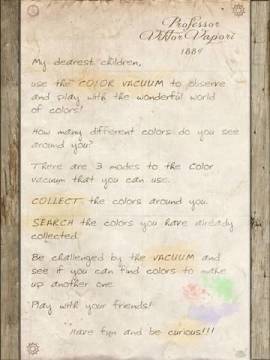 Professor
Viktor Vapori
1889
My dearest children,
use the COLOR VACUUM to observe
and play with the wonderful world
of colors!
How many different colors do you see
around you?
There are 3 modes to the Color
vacuum that you can use.
COLLECT the colors around you.
SEARCH the colors you have already
collected.
Be challenged by the VACUUM and
see if you can find colors to make
up another one.
Play with your friends!
Have fun and be curious!!!